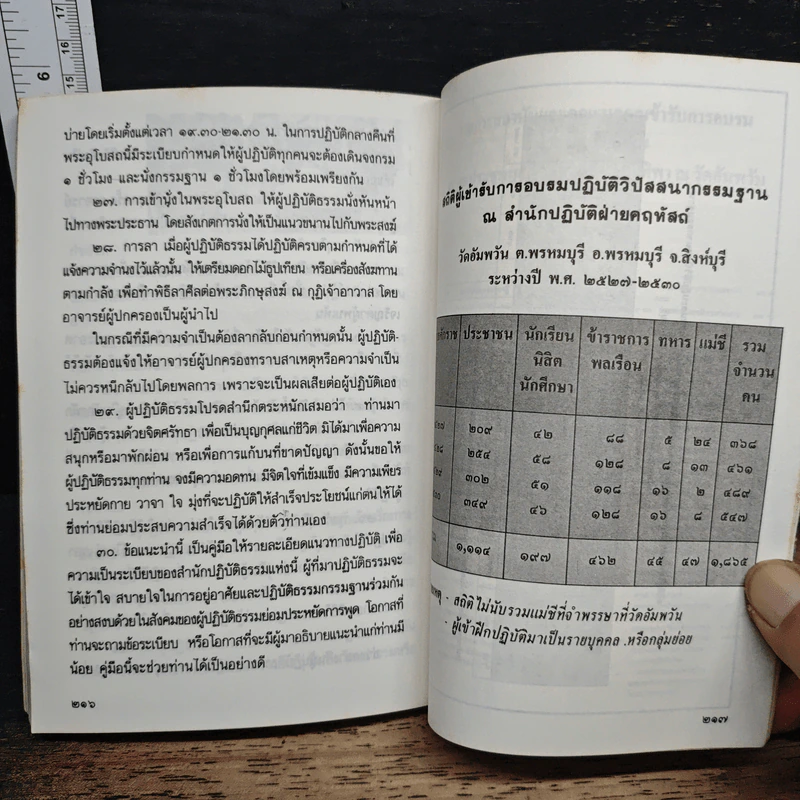 บ่ายโดยเริ่มตั้งแต่เวลา ๑๙.๓๐-๒๑.๓๐ น. ในการปฏิบัติกลางคืนที่
พระอุโบสถนี้มีระเบียบกำหนดให้ผู้ปฏิบัติทุกคนจะต้องเดินจงกรม
๑ ชั่วโมง และนั่งกรรมฐาน ๑ ชั่วโมงโดยพร้อมเพรียงกัน
๒๗. การเข้านั่งในพระอุโบสถ ให้ผู้ปฏิบัติธรรมนั่งหันหน้า
ไปทางพระประธาน โดยสังเกตการนั่งให้เป็นแนวขนานไปกับพระสงฆ์
๒๘. การลา เมื่อผู้ปฏิบัติธรรมได้ปฏิบัติครบตามกำหนดที่ได้
แจ้งความจำนงไว้แล้วนั้น ให้เตรียมดอกไม้ธูปเทียน หรือเครื่องสังฆทาน
ตามกำลัง เพื่อทำพิธีลาศีลต่อพระภิกษุสงฆ์ ณ กุฏิเจ้าอาวาส โดย
อาจารย์ผู้ปกครองเป็นผู้นำไป
ในกรณีที่มีความจำเป็นต้องลากลับก่อนกำหนดนั้น ผู้ปฏิบัติ-
ธรรมต้องแจ้งให้อาจารย์ผู้ปกครองทราบสาเหตุหรือความจำเป็น
ไม่ควรหนีกลับไปโดยพลการ เพราะจะเป็นผลเสียต่อผู้ปฏิบัติเอง
๒๙. ผู้ปฏิบัติธรรมโปรดสำนึกตระหนักเสมอว่า ท่านมา
ปฏิบัติธรรมด้วยจิตศรัทธา เพื่อเป็นบุญกุศลแก่ชีวิต มิได้มาเพื่อความ
สนุกหรือมาพักผ่อน หรือเพื่อการแก้บนที่ขาดปัญญา ดังนั้นขอให้
ผู้ปฏิบัติธรรมทุกท่าน จงมีความอดทน มีจิตใจที่เข้มแข็ง มีความเพียร
ประหยัดกาย วาจา ใจ มุ่งที่จะปฏิบัติให้สำเร็จประโยชน์แก่ตนให้ได้
ซึ่งท่านย่อมประสบความสำเร็จได้ด้วยตัวท่านเอง
๓๐. ข้อแนะนำนี้ เป็นคู่มือให้รายละเอียดแนวทางปฏิบัติ เพื่อ
ความเป็นระเบียบของสำนักปฏิบัติธรรมแห่งนี้ ผู้ที่มาปฏิบัติธรรมจะ
ได้เข้าใจ สบายใจในการอยู่อาศัยและปฏิบัติธรรมกรรมฐานร่วมกัน
อย่างสงบด้วยในสังคมของผู้ปฏิบัติธรรมย่อมประหยัดการพูด โอกาสที่
ท่านจะถามข้อระเบียบ หรือโอกาสที่จะมีผู้มาอธิบายแนะนำแก่ท่านมี
น้อย คู่มือนี้จะช่วยท่านได้เป็นอย่างดี
๒๑๖
สถิติผู้เข้ารับการอบรมปฏิบัติวิปัสสนากรรมฐาน
ณ สำนักปฏิบัติฝ่ายคฤหัสถ์
วัดอัมพวัน ต.พรหมบุรี อ.พรหมบุรี จ.สิงห์บุรี
ระหว่างปี พ.ศ. ๒๕๒๗-๒๕๓๐
ประชาชน นักเรียน ข้าราชการ ทหาร แม่ชี รวม
นิสิต พลเรือน จำนวน
นักศึกษา คน
๒๐๙ ๔๒ ๘๘ ๕ ๒๔ ๓๖๘
๒๕๔ ๕๘ ๑๒๘ ๘ ๑๓ ๔๖๑
๓๐๒ ๕๑ ๑๑๘ ๑๖ ๒ ๔๘๙
๓๔๙ ๔๖ ๑๒๘ ๑๖ ๘ ๕๔๗
๑,๑๑๔ ๑๙๗ ๔๖๒ ๔๕ ๔๗ ๑,๘๖๕
- สถิติไม่นับรวมแม่ชีที่จำพรรษาที่วัดอัมพวัน
- ผู้เข้าฝึกปฏิบัติมาเป็นรายบุคคล .หรือกลุ่มย่อย
๒๑๗
6
17
16
15